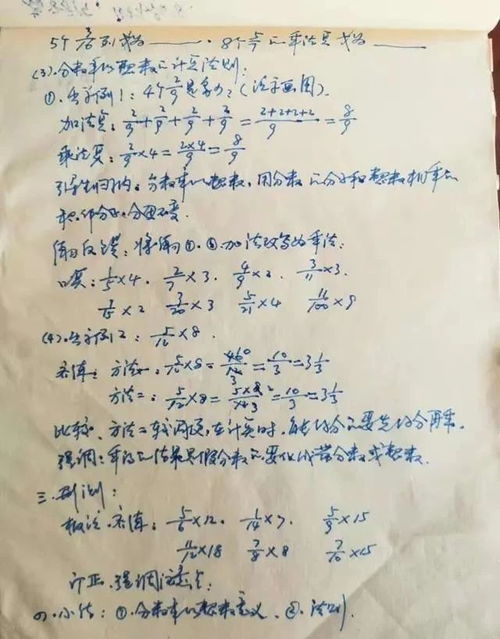 5个3/10列式为______. 8个5/7的乘法算式为______
(3).分数乘以整数的计算法则:
①.出示例1: 4个2/9是多少? (出示画图).
加法算: 2/9+2/9+2/9+2/9=(2+2+2+2)/9=8/9
乘法算: 2/9×4=(2×4)/9=8/9
引导归纳: 分数乘以整数, 用分数的分子和整数相乘的
积作分子, 分母不变.
: 将①、②.加法改写为乘法.
口算: 1/5×4. 2/7×3. 4/9×2. 3/11×3.
/15×2 3/20×3 5/21×4 11/100×9
(4).出示例2: 5/12×8.
板演: 方法一: 5/12×8=40/12=10/3=3 1/3
方法二: 5/12×8=(5×8)/12=10/3=3 1/3
比较, 方法二较简便, 在计算时, 能约分的要先约分再乘.
强调: 乘得的结果是假分数的要化成带分数或整数.
三.:
板演: 5/6×12. 1/14×7. 5/9×15
11/12×18 7/8×8 7/10×15
订正. 强调注意点:
四.小结: ①.分数乘以整数意义. ②.法则.